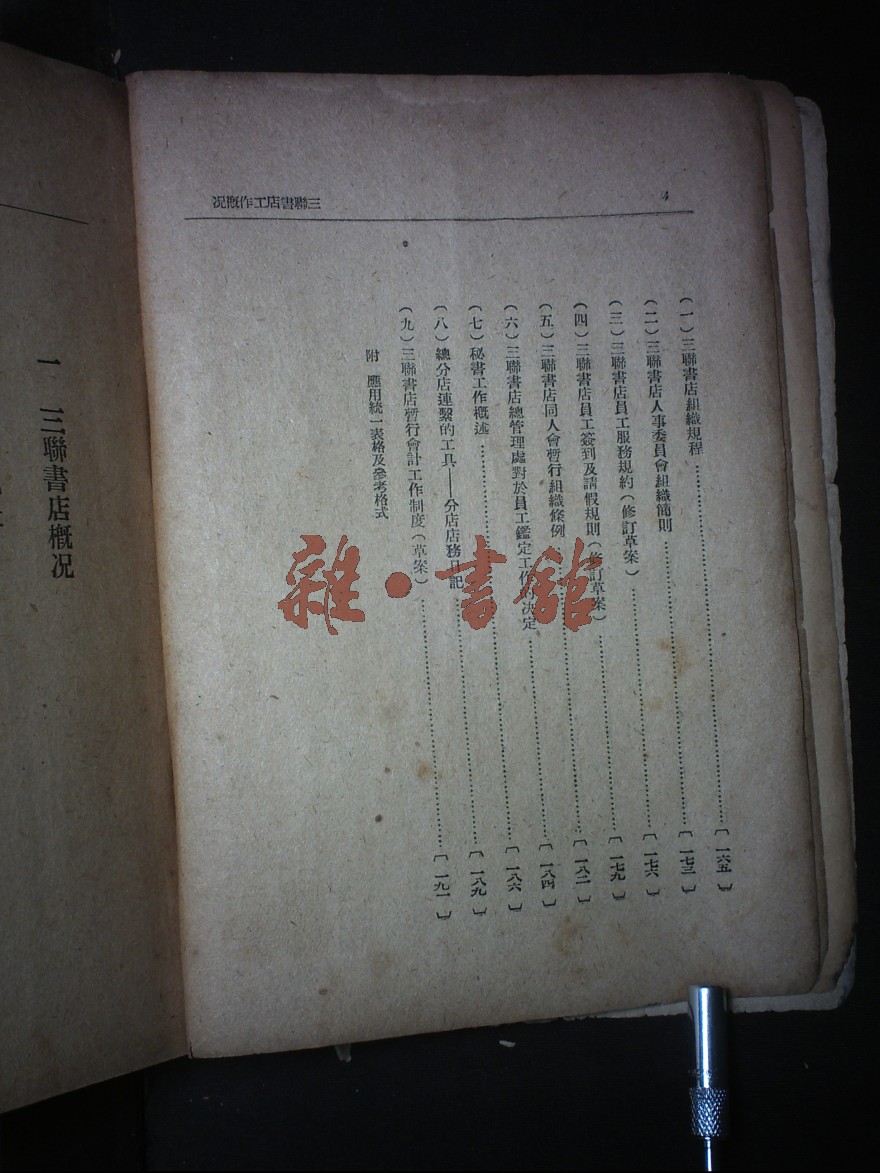 三聯書店工作概况
4
（一）三聯書店組織規程……〔一六五〕
（二）三聯書店人事委員會組織簡則……〔一七三〕
（三）三聯書店員工服務規約（修訂草案）……〔一七六〕
（四）三聯書店員工簽到及請假規則（修訂草案）……〔一七九〕
（五）三聯書店同人會暫行組織條例……〔一八二〕
（六）三聯書店總管理處對於員工鑑定工作的決定……〔一八四〕
（七）秘書工作概述……〔一八六〕
（八）總分店連繫的工具——分店店務日記……〔一八九〕
（九）三聯書店暫行會計工作制度（草案）……〔一九一〕
附 應用統一表格及參考格式
一 三聯書店概况
雜·書館